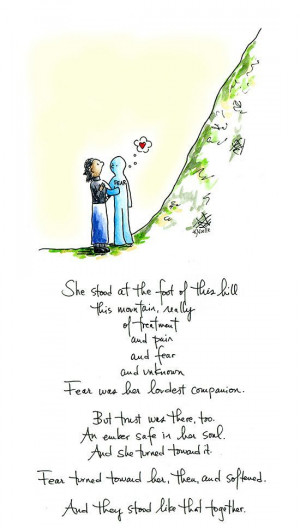 FEAR
She stood at the foot of this hill
this mountain, really
of treatment
and pain
and fear
and unknown
Fear was her loudest companion.
But trust was there, too.
An ember safe in her soul.
And she turned toward it.
Fear turned toward her, then, and softened.
And they stood like that together.